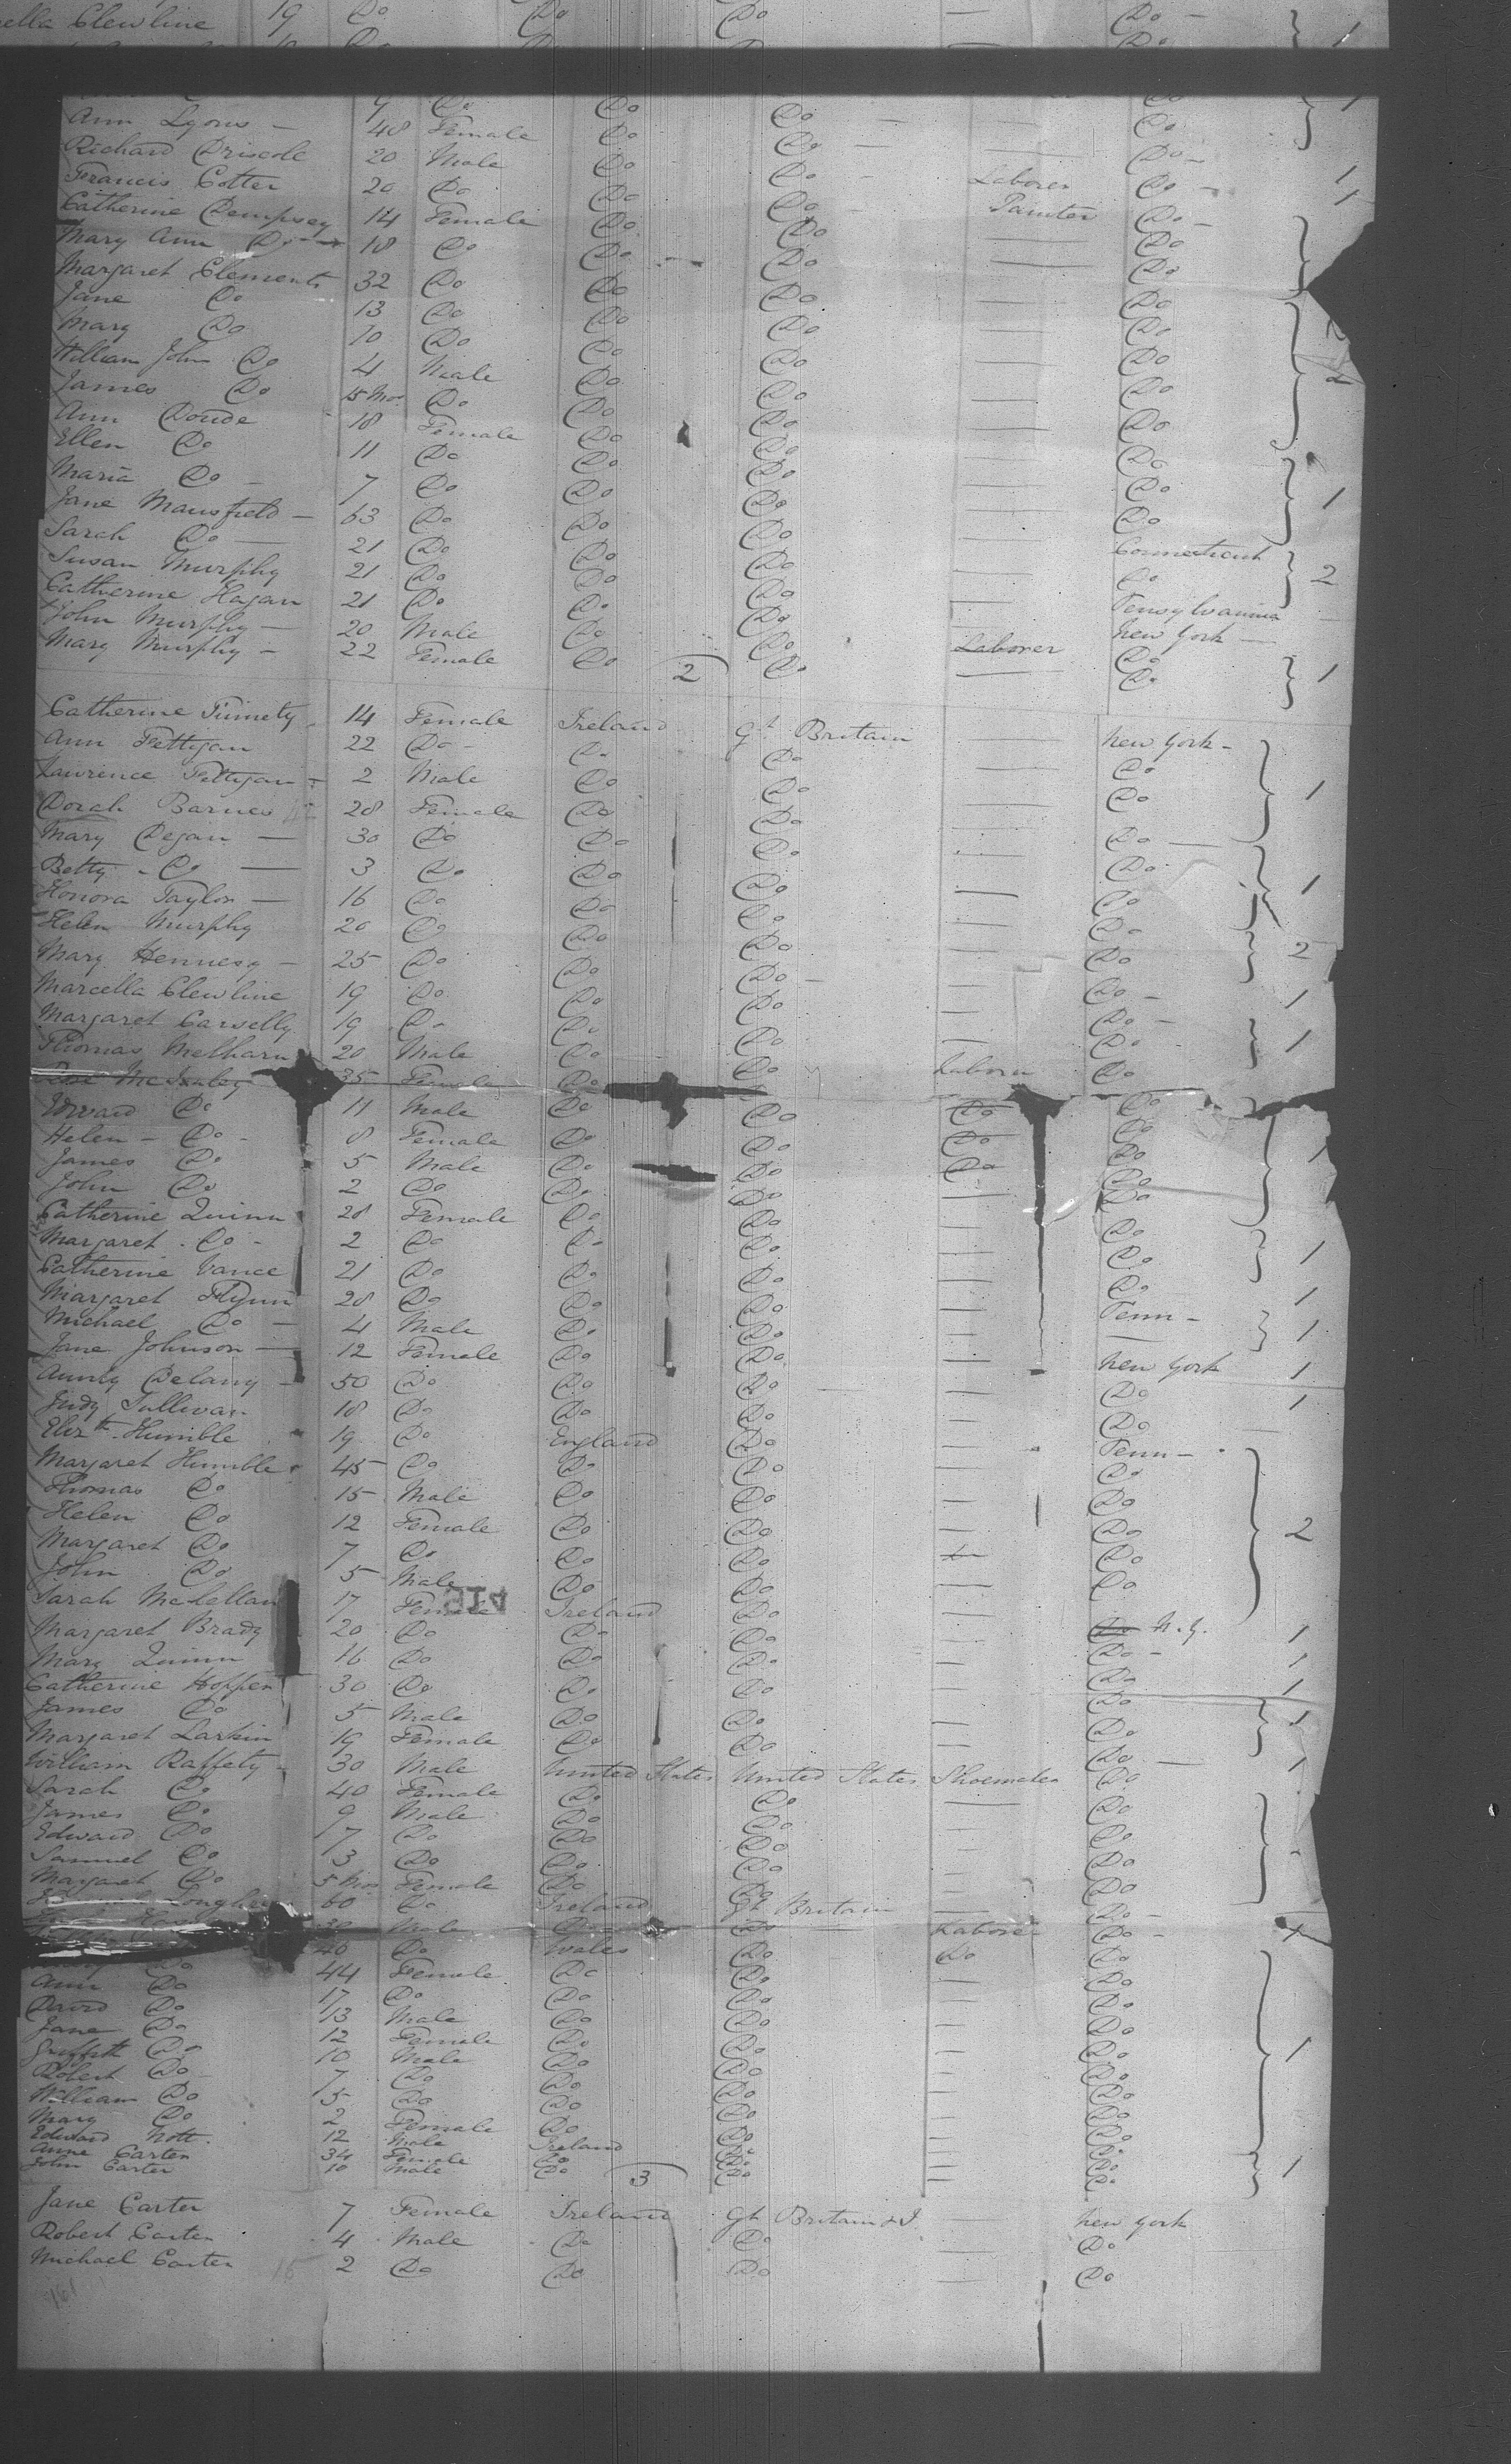 ella Clewline 19 Do Do Do — Do — 1
9 Do Do Do — Do
Ann Lyons — 40 Female Do Do — Do
Richard Driscole 20 Male Do Do Laborer Do — 1
Francis Cotter 20 Do Do Do Painter Do — 1
Catherine Dempsey 14 Female Do Do — Do
Mary Ann Do 18 Do Do Do — Do
Margaret Clements 32 Do Do Do — Do
Jane Do 13 Do Do Do — Do
Mary Do 10 Do Do Do — Do
William John Do 4 Male Do Do — Do
James Do 15 Mos. Do Do Do — Do
Ann 18 Female Do Do — Do
Ellen Do 11 Do Do Do — Do 1
Maria Do — 7 Do Do Do — Do
Jane Mansfield — 63 Do Do Do — Connecticut
Sarah Do — 21 Do Do Do — Do 2
Susan Murphy 21 Do Do Do — Pensylvania —
Catherine Hagan 21 Do Do Do — New York —
John Murphy — 20 Male Do Do Laborer Do
Mary Murphy — 22 Female Do Do — Do 1
2
Catherine 14 Female Ireland Gt Britain — New York —
Ann Fettigan 22 Do — Do Do — Do
Lawrence Fettigan — 2 Male Do Do — Do 1
Dorah Barnes 28 Female Do Do — Do —
Mary Degan — 30 Do Do Do — Do
Betty Do — 3 Do Do Do — Do 1
Honora Taylor — 16 Do Do Do — Do
Helen Murphy 20 Do Do Do — Do 2
Mary Hennesy — 25 Do Do Do — — Do —
Marcella Clewline 19 Do Do Do — Do — 1
Margaret Carselly 19 Do Do Do — Do 1
Thomas 20 Male Do Do Laborer Do
35 Female Do Do Do Do
Do 11 Male Do Do Do Do
Helen — Do — 8 Female Do Do Do Do 1
James Do 5 Male Do Do — Do
John Do 2 Do Do Do — Do
Catherine Quinn 28 Female Do Do — Do
Margaret Do — 2 Do Do Do — Do 1
Catherine Vance 21 Do Do Do — Do 1
Margaret Flynn 28 Do Do Do — Penn —
Michael Do — 4 Male Do Do — — 1
Jane Johnson — 12 Female Do Do — New York 1
Delany — 50 Do Do Do — Do 1
Judy Sullivan 18 Do Do Do — Do —
Elizth Humble 19 Do England Do — Penn —
Margaret Humble 45 Do Do Do — Do
Thomas Do 15 Male Do Do — Do
Helen Do 12 Female Do Do — Do 2
Margaret Do 7 Do Do Do — Do
John Do 5 Male Do Do — Do
Sarah McLellan 17 Female Ireland Do — Do N.Y. 1
Margaret Brady 20 Do Do Do — Do — 1
Mary Quinn 16 Do Do Do — Do 1
Catherine Hoppen 30 Do Do Do — Do
James Do 5 Male Do Do — Do 1
Margaret Larkin 19 Female Do Do — Do — 1
William Raffety 30 Male United States United States Shoemaker Do
Sarah Do 40 Female Do Do — Do
James Do 9 Male Do Do — Do
Edward Do 7 Do Do Do — Do
Samuel Do 3 Do Do Do — Do
Margaret Do 5 Mos Female Do Do — Do
60 Do Ireland Gt Britain — Do —
30 Male Do Do Laborer Do —
40 Do Wales Do Do Do
Do 44 Female Do Do — Do
Ann Do 17 Do Do Do — Do
David Do 13 Male Do Do — Do
Jane Do 12 Female Do Do — Do
Griffith Do 10 Male Do Do — Do 1
Robert Do 7 Do Do Do — Do
William Do 5 Do Do Do — Do
Mary Do 2 Female Do Do — Do
Edward Nott 12 Male Ireland Do — Do
Anne Carter 34 Female Do Do — Do 1
John Carter 10 Male Do Do — Do
3
Jane Carter 7 Female Ireland Gt Britain & I — New York
Robert Carter 4 Male Do Do — Do
Michael Carter 2 Do Do Do — Do